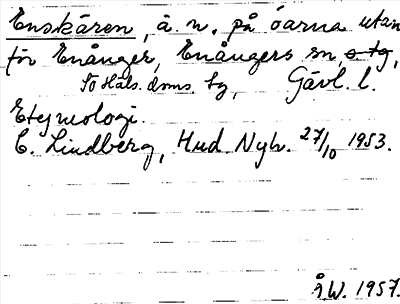 Enskären, ä. n. på öarna utan
för Enånger, Enångers sn, o. tg,
So Häls. doms. tg, Gävl. l.
Etymologi.
E. Lindberg, Hud. Nyh. 27/10 1953.
ÅW. 1957.